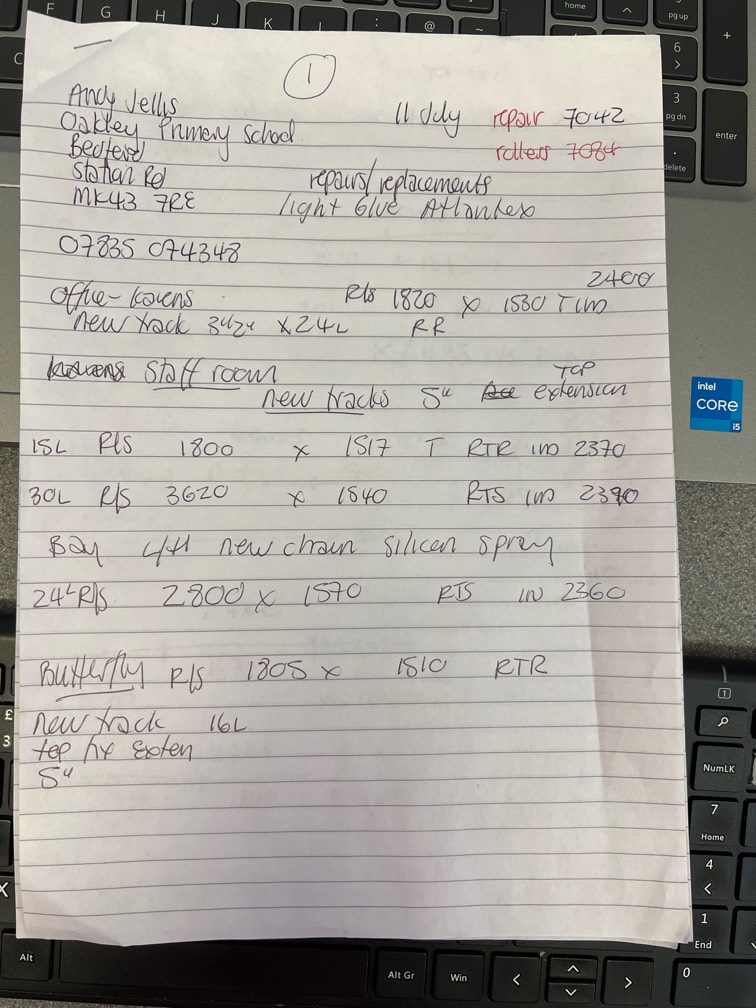 1
Andy Jellis
Oakley Primary School
Bedford
Station Rd
MK43 7RE
11 July repair 7042
rollers 7084
repairs/replacements
light blue Atlantex
07835 074348
2400
Office - Ravens R/s 1820 x 1530 T IW
new track x 24L RR
Staff room
new tracks 5" TOP extension
15L R/s 1800 x 1517 T RTR IW 2370
30L R/s 3620 x 1540 RTS IW 2390
Bay 4/H new chain silicon spray
24L R/s 2800 x 1570 RTS IW 2360
Butterfly R/s 1805 x 1510 RTR
new track 16L
top fix exten
5"
F
G
H
J
K
L
:
@
~
home
pg up
+
6
3
pg dn
enter
.
delete
intel
CORE
i5
£
3
NumLK
7
Home
4
1
End
0
X
Alt
Alt Gr
Win